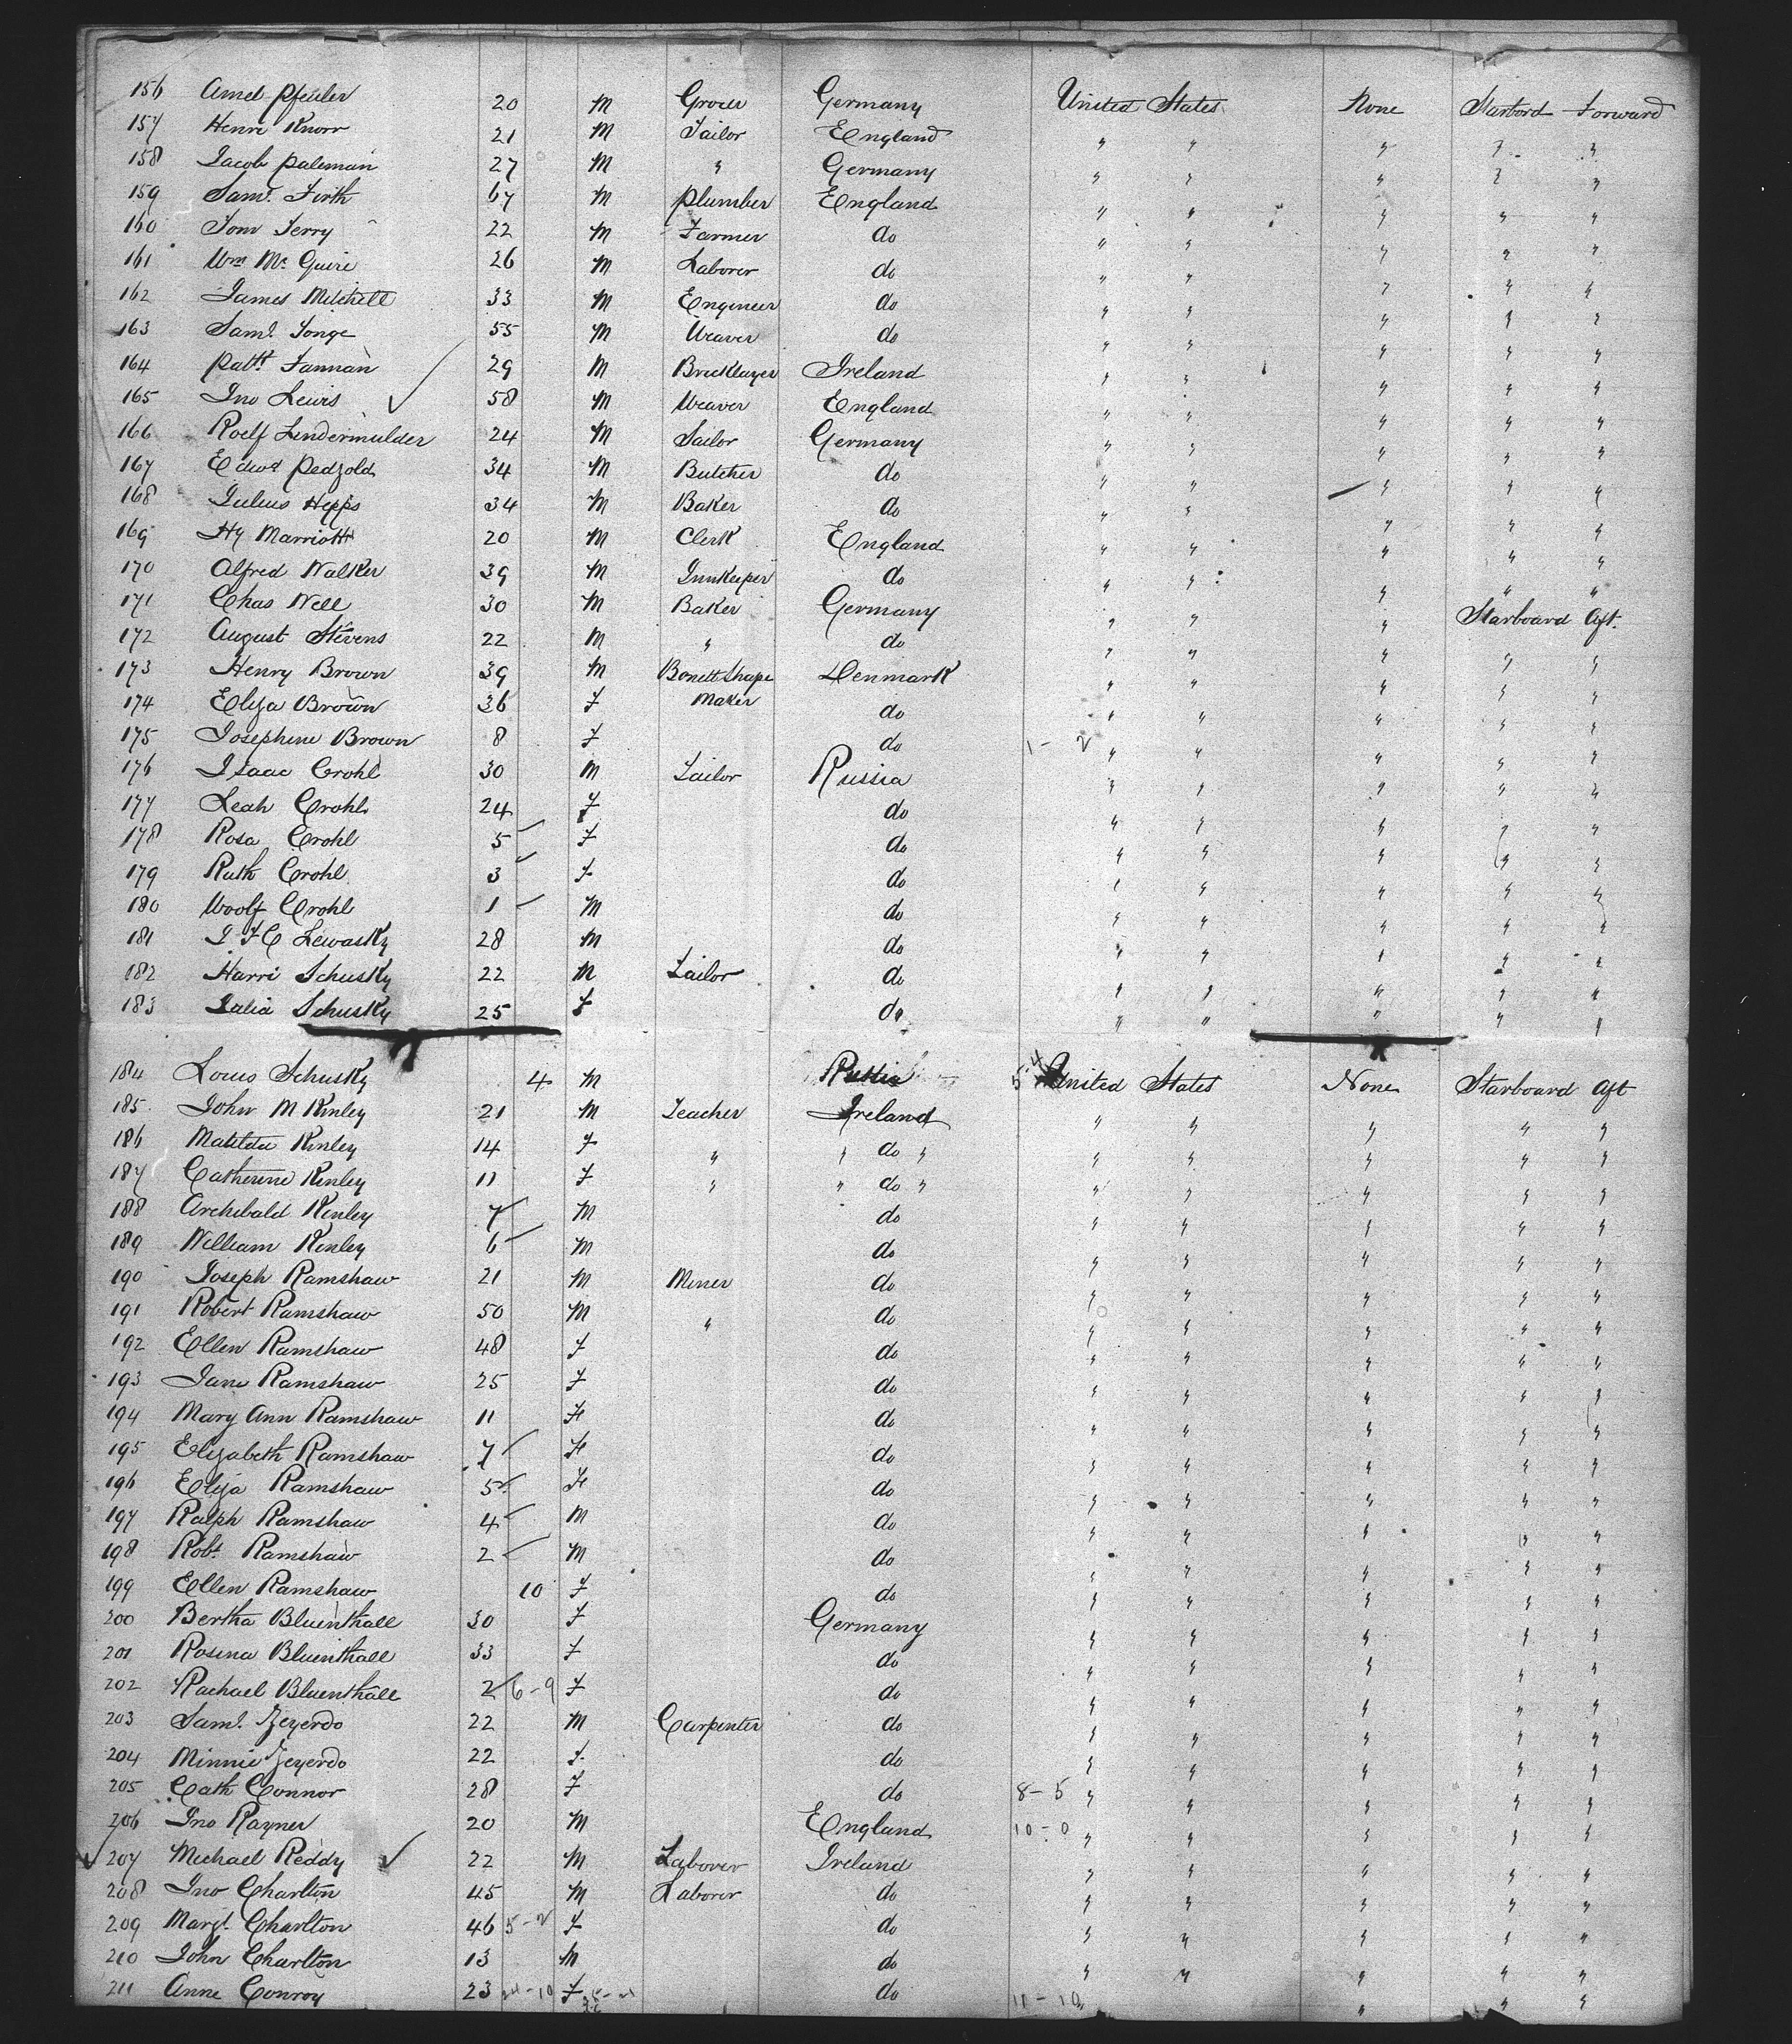 156 Amel Pfeuler 20 M Grocer Germany United States None Starbord Forward
157 Henri Knorr 21 M Tailor England " " " " "
158 Jacob Paleman 27 M " Germany " " " " "
159 Saml. Firth 67 M Plumber England " " " " "
160 Tom Terry 22 M Farmer do " " " " "
161 Wm Mc Guire 26 M Laborer do " " " " "
162 James Mitchell 33 M Engineer do " " " " "
163 Saml. Tonge 55 M Weaver do " " " " "
164 Patk. Fannan 29 M Bricklayer Ireland " " " " "
165 Jno Lewis 58 M Weaver England " " " " "
166 Roelf Lindermulder 24 M Sailor Germany " " " " "
167 Edwd Pedzold 34 M Butcher do " " " " "
168 Julius Hepps 34 M Baker do " " " " "
169 Hy Marriott 20 M Clerk England " " " " "
170 Alfred Walker 39 M Innkeeper do " " " " "
171 Chas Well 30 M Baker Germany " " " Starboard Aft.
172 August Stevens 22 M " do " " " " "
173 Henry Brown 39 M Bonett Shape Denmark " " " " "
174 Eliza Brown 36 F Maker do " " " " "
175 Josephine Brown 8 F do 1 - 2 " " " " "
176 Isaac Crohl 30 M Tailor Russia " " " " "
177 Leah Crohl 24 F do " " " " "
178 Rosa Crohl 5 F do " " " " "
179 Ruth Crohl 3 F do " " " " "
180 Woolf Crohl 1 M do " " " " "
181 J F C Lewasky 28 M do " " " " "
182 Harri Schusky 22 M Tailor do " " " " "
183 Julia Schusky 25 F do " " " " "
184 Louis Schusky 4 M Russia 5-4 United States None Starboard Aft
185 John M Kinley 21 M Teacher Ireland " " " " "
186 Matilda Kinley 14 F " " do " " " " " "
187 Catherine Kinley 11 F " " do " " " " " "
188 Archibald Kinley 7 M do " " " " "
189 William Kinley 6 M do " " " " "
190 Joseph Ramshaw 21 M Miner do " " " " "
191 Robert Ramshaw 50 M " do " " " " "
192 Ellen Ramshaw 48 F do " " " " "
193 Jane Ramshaw 25 F do " " " " "
194 Mary Ann Ramshaw 11 F do " " " " "
195 Elizabeth Ramshaw 7 F do " " " " "
196 Eliza Ramshaw 5 F do " " " " "
197 Ralph Ramshaw 4 M do " " " " "
198 Robt. Ramshaw 2 M do " " " " "
199 Ellen Ramshaw 10 F do " " " " "
200 Bertha Bluenthall 30 F Germany " " " " "
201 Rosina Bluenthall 33 F do " " " " "
202 Rachael Bluenthall 2 6-9 F do " " " " "
203 Saml. Zeyerdo 22 M Carpenter do " " " " "
204 Minnie Zeyerdo 22 F do " " " " "
205 Cath Connor 28 F do 8-5 " " " " "
206 Jno Rayner 20 M England 10-0 " " " " "
207 Michael Reddy 22 M Laborer Ireland " " " " "
208 Jno Charlton 45 M Laborer do " " " " "
209 Margt. Charlton 46 5-2 F do " " " " "
210 John Charlton 13 M do " " " " "
211 Anne Conroy 23 24-10 F do 11-10 " " "